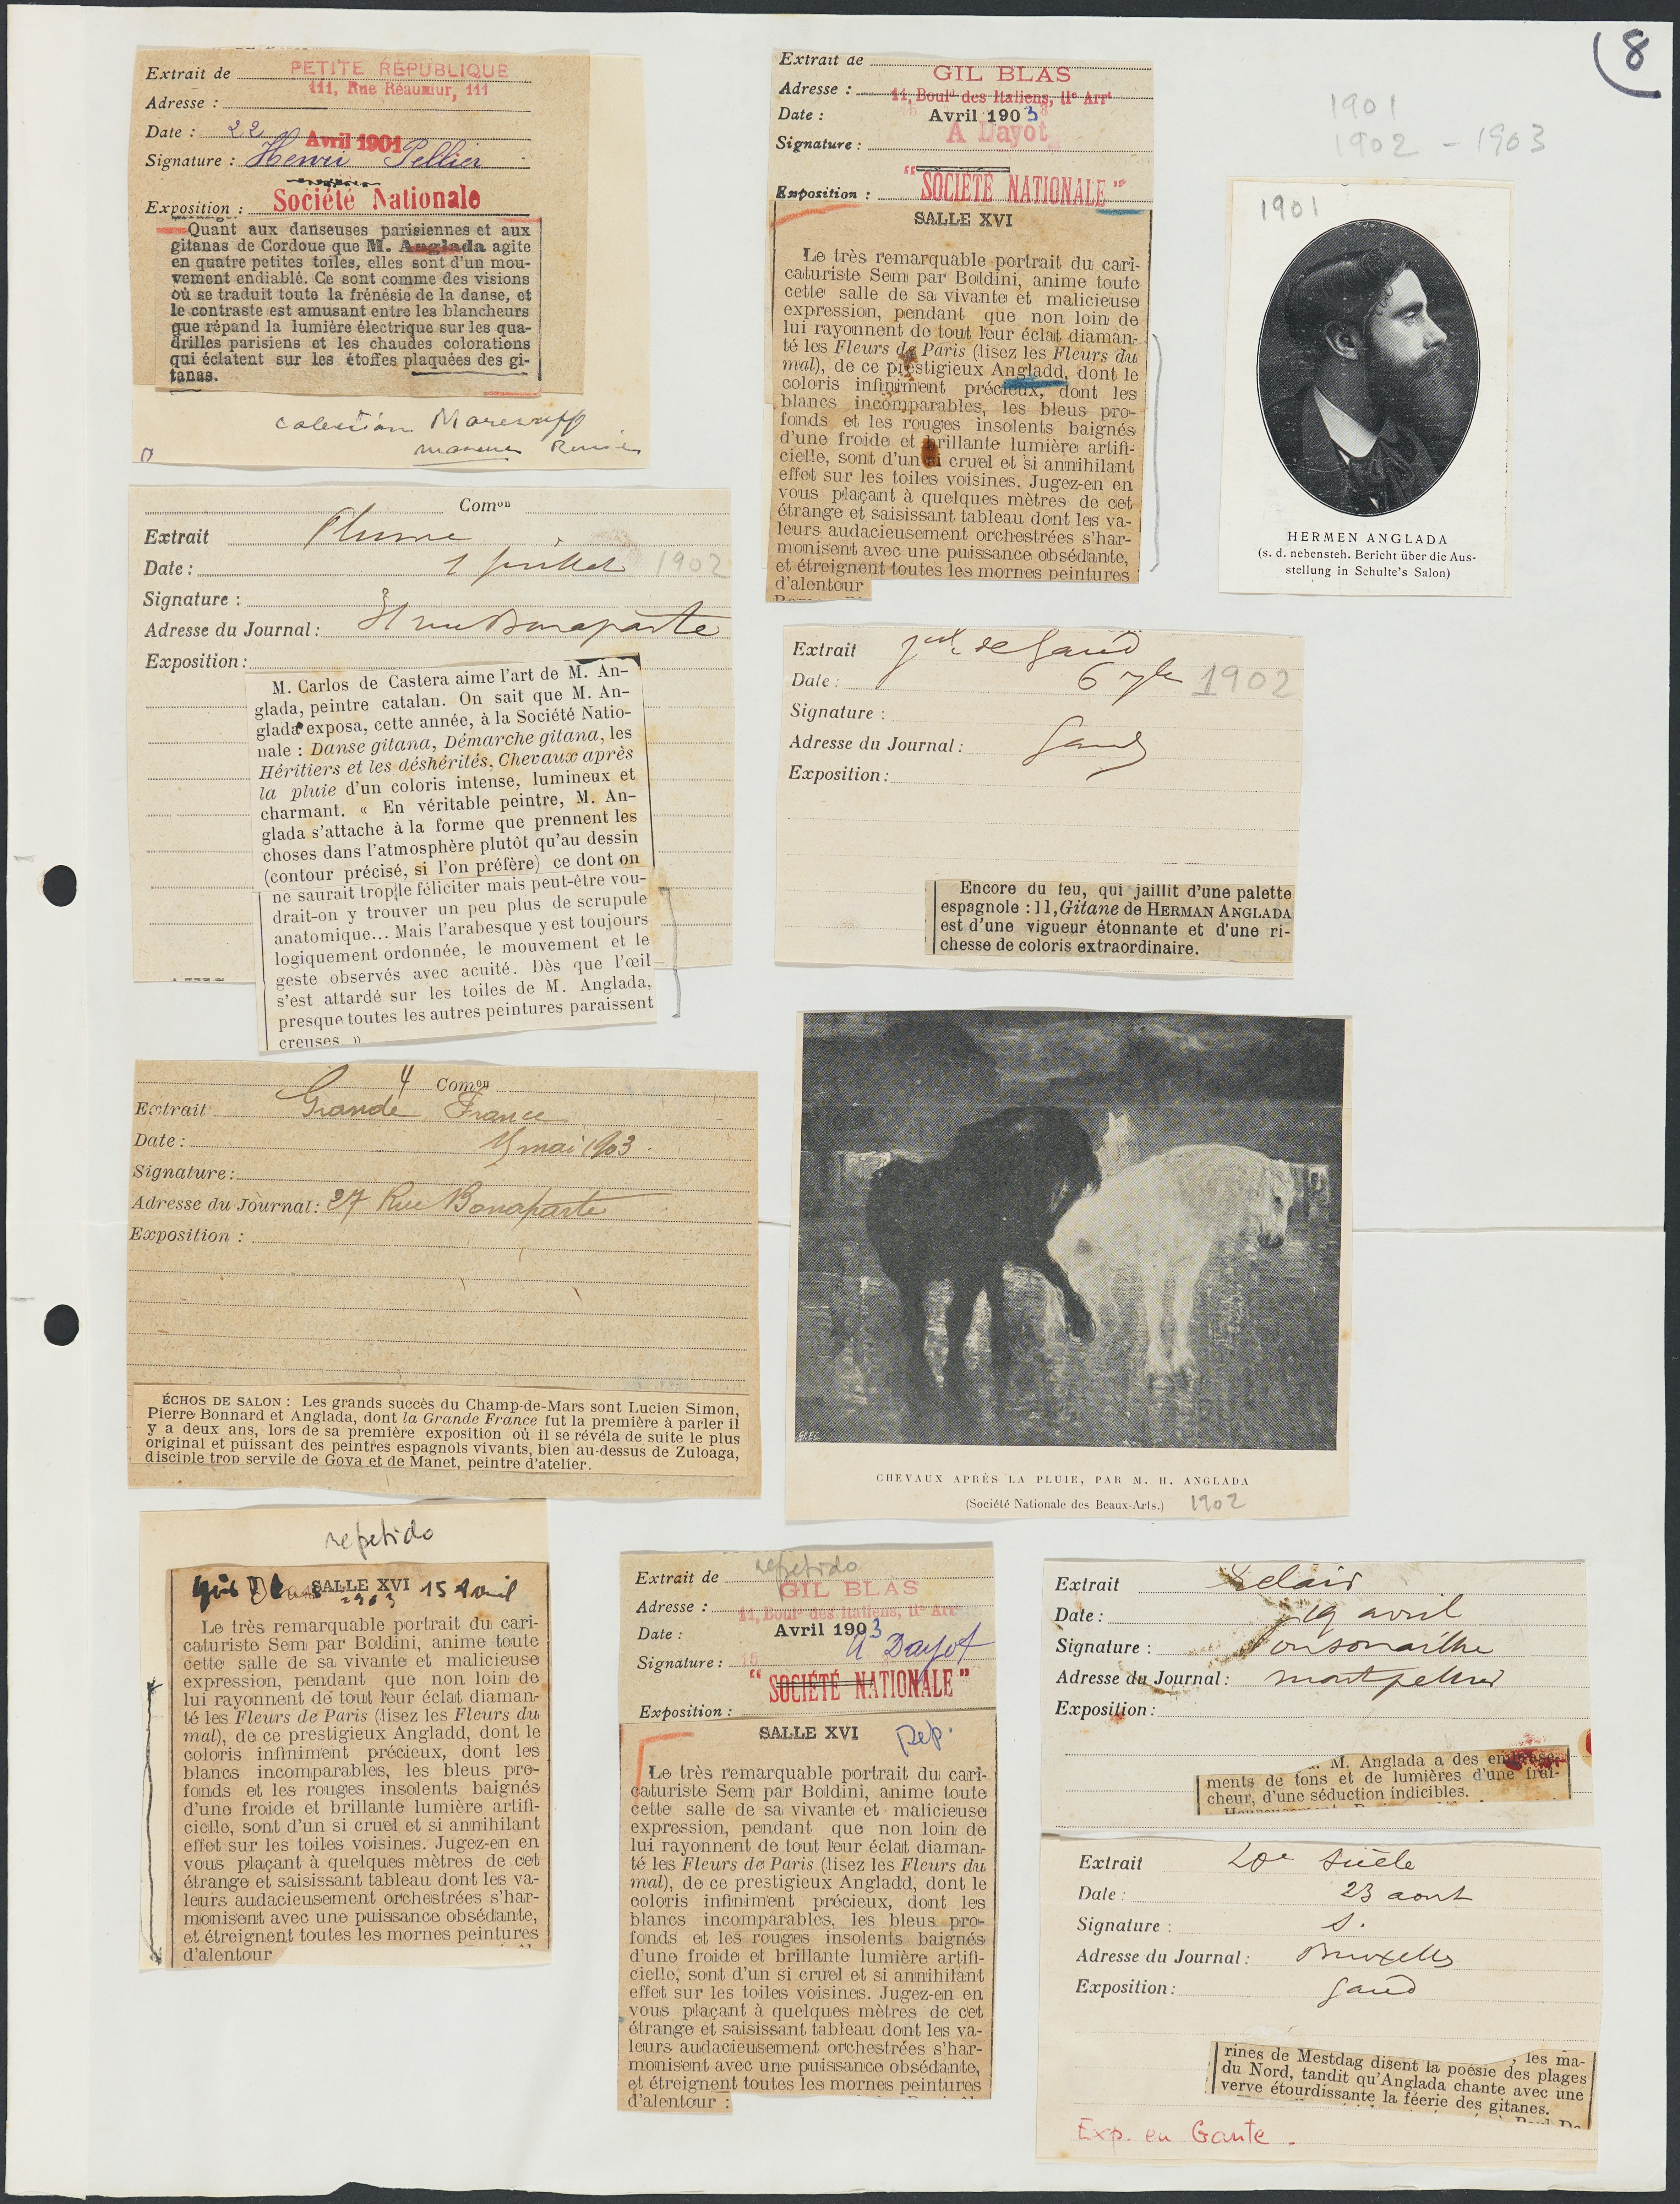 8
1901
1902 - 1903
Extrait de PETITE RÉPUBLIQUE
111, Rue Réaumur, 111
Adresse :
Date : 22 Avril 1901
Signature : Henri Pellier
Société Nationale
Exposition :
Quant aux danseuses parisiennes et aux
gitanas de Cordoue que M. Anglada agite
en quatre petites toiles, elles sont d'un mou-
vement endiablé. Ce sont comme des visions
où se traduit toute la frénésie de la danse, et
le contraste est amusant entre les blancheurs
que répand la lumière électrique sur les qua-
drilles parisiens et les chaudes colorations
qui éclatent sur les étoffes plaquées des gi-
tanas.
Extrait de
GIL BLAS
Adresse : 11, Boulᵈ des Italiens, IIᵉ Arrᵗ
Date : Avril 1903
A Dayot
Signature :
"SOCIÉTÉ NATIONALE"
Exposition :
SALLE XVI
Le très remarquable portrait du cari-
caturiste Sem par Boldini, anime toute
cette salle de sa vivante et malicieuse
expression, pendant que non loin de
lui rayonnent de tout leur éclat diaman-
té les Fleurs de Paris (lisez les Fleurs du
mal), de ce prestigieux Angladd, dont le
coloris infiniment précieux, dont les
blancs incomparables, les bleus pro-
fonds et les rouges insolents baignés
d'une froide et brillante lumière artifi-
cielle, sont d'un si cruel et si annihilant
effet sur les toiles voisines. Jugez-en en
vous plaçant à quelques mètres de cet
étrange et saisissant tableau dont les va-
leurs audacieusement orchestrées s'har-
monisent avec une puissance obsédante,
et étreignent toutes les mornes peintures
d'alentour
1901
HERMEN ANGLADA
(s. d. nebensteh. Bericht über die Aus-
stellung in Schulte's Salon)
Comᵒⁿ
Extrait Plume
Date : 1 juillet 1902
Signature :
Adresse du Journal : 31 rue Bonaparte
Exposition :
M. Carlos de Castera aime l'art de M. An-
glada, peintre catalan. On sait que M. An-
glada exposa, cette année, à la Société Natio-
nale : Danse gitana, Démarche gitana, les
Héritiers et les déshérités, Chevaux après
la pluie d'un coloris intense, lumineux et
charmant. « En véritable peintre, M. An-
glada s'attache à la forme que prennent les
choses dans l'atmosphère plutôt qu'au dessin
(contour précisé, si l'on préfère) ce dont on
ne saurait trop le féliciter mais peut-être vou-
drait-on y trouver un peu plus de scrupule
anatomique... Mais l'arabesque y est toujours
logiquement ordonnée, le mouvement et le
geste observés avec acuité. Dès que l'œil
s'est attardé sur les toiles de M. Anglada,
presque toutes les autres peintures paraissent
creuses »
Extrait de Gand
Date : 6 7bre 1902
Signature :
Adresse du Journal : Gand
Exposition :
Encore du feu, qui jaillit d'une palette
espagnole : 11, Gitane de HERMAN ANGLADA
est d'une vigueur étonnante et d'une ri-
chesse de coloris extraordinaire.
4 Comᵒⁿ
Extrait Grande France
Date : 15 mai 1903
Signature :
Adresse du Journal : 27 Rue Bonaparte
Exposition :
ÉCHOS DE SALON : Les grands succès du Champ-de-Mars sont Lucien Simon,
Pierre Bonnard et Anglada, dont la Grande France fut la première à parler il
y a deux ans, lors de sa première exposition où il se révéla de suite le plus
original et puissant des peintres espagnols vivants, bien au-dessus de Zuloaga,
disciple trop servile de Goya et de Manet, peintre d'atelier.
CHEVAUX APRÈS LA PLUIE, PAR M. H. ANGLADA
(Société Nationale des Beaux-Arts.) 1902
repetido
Gil Blas SALLE XVI 15 Avril
1903
Le très remarquable portrait du cari-
caturiste Sem par Boldini, anime toute
cette salle de sa vivante et malicieuse
expression, pendant que non loin de
lui rayonnent de tout leur éclat diaman-
té les Fleurs de Paris (lisez les Fleurs du
mal), de ce prestigieux Angladd, dont le
coloris infiniment précieux, dont les
blancs incomparables, les bleus pro-
fonds et les rouges insolents baignés
d'une froide et brillante lumière artifi-
cielle, sont d'un si cruel et si annihilant
effet sur les toiles voisines. Jugez-en en
vous plaçant à quelques mètres de cet
étrange et saisissant tableau dont les va-
leurs audacieusement orchestrées s'har-
monisent avec une puissance obsédante,
et étreignent toutes les mornes peintures
d'alentour
repetido
Extrait de
GIL BLAS
Adresse : 11, Boulᵈ des Italiens, IIᵉ Arrᵗ
Date : Avril 1903
Signature : A Dayot
"SOCIÉTÉ NATIONALE"
Exposition :
SALLE XVI
rep.
Le très remarquable portrait du cari-
caturiste Sem par Boldini, anime toute
cette salle de sa vivante et malicieuse
expression, pendant que non loin de
lui rayonnent de tout leur éclat diaman-
té les Fleurs de Paris (lisez les Fleurs du
mal), de ce prestigieux Angladd, dont le
coloris infiniment précieux, dont les
blancs incomparables, les bleus pro-
fonds et les rouges insolents baignés
d'une froide et brillante lumière artifi-
cielle, sont d'un si cruel et si annihilant
effet sur les toiles voisines. Jugez-en en
vous plaçant à quelques mètres de cet
étrange et saisissant tableau dont les va-
leurs audacieusement orchestrées s'har-
monisent avec une puissance obsédante,
et étreignent toutes les mornes peintures
d'alentour :
Extrait Eclair
Date : 19 avril
Signature :
Adresse du Journal : Montpellier
Exposition :
M. Anglada a des
ments de tons et de lumières d'une fraî-
cheur, d'une séduction indicibles.
Extrait 20e Siècle
Date : 23 aout
Signature : S.
Adresse du Journal : Bruxelles
Exposition : Gand
, les ma-
rines de Mestdag disent la poésie des plages
du Nord, tandit qu'Anglada chante avec une
verve étourdissante la féerie des gitanes.
Exp. en Gante.